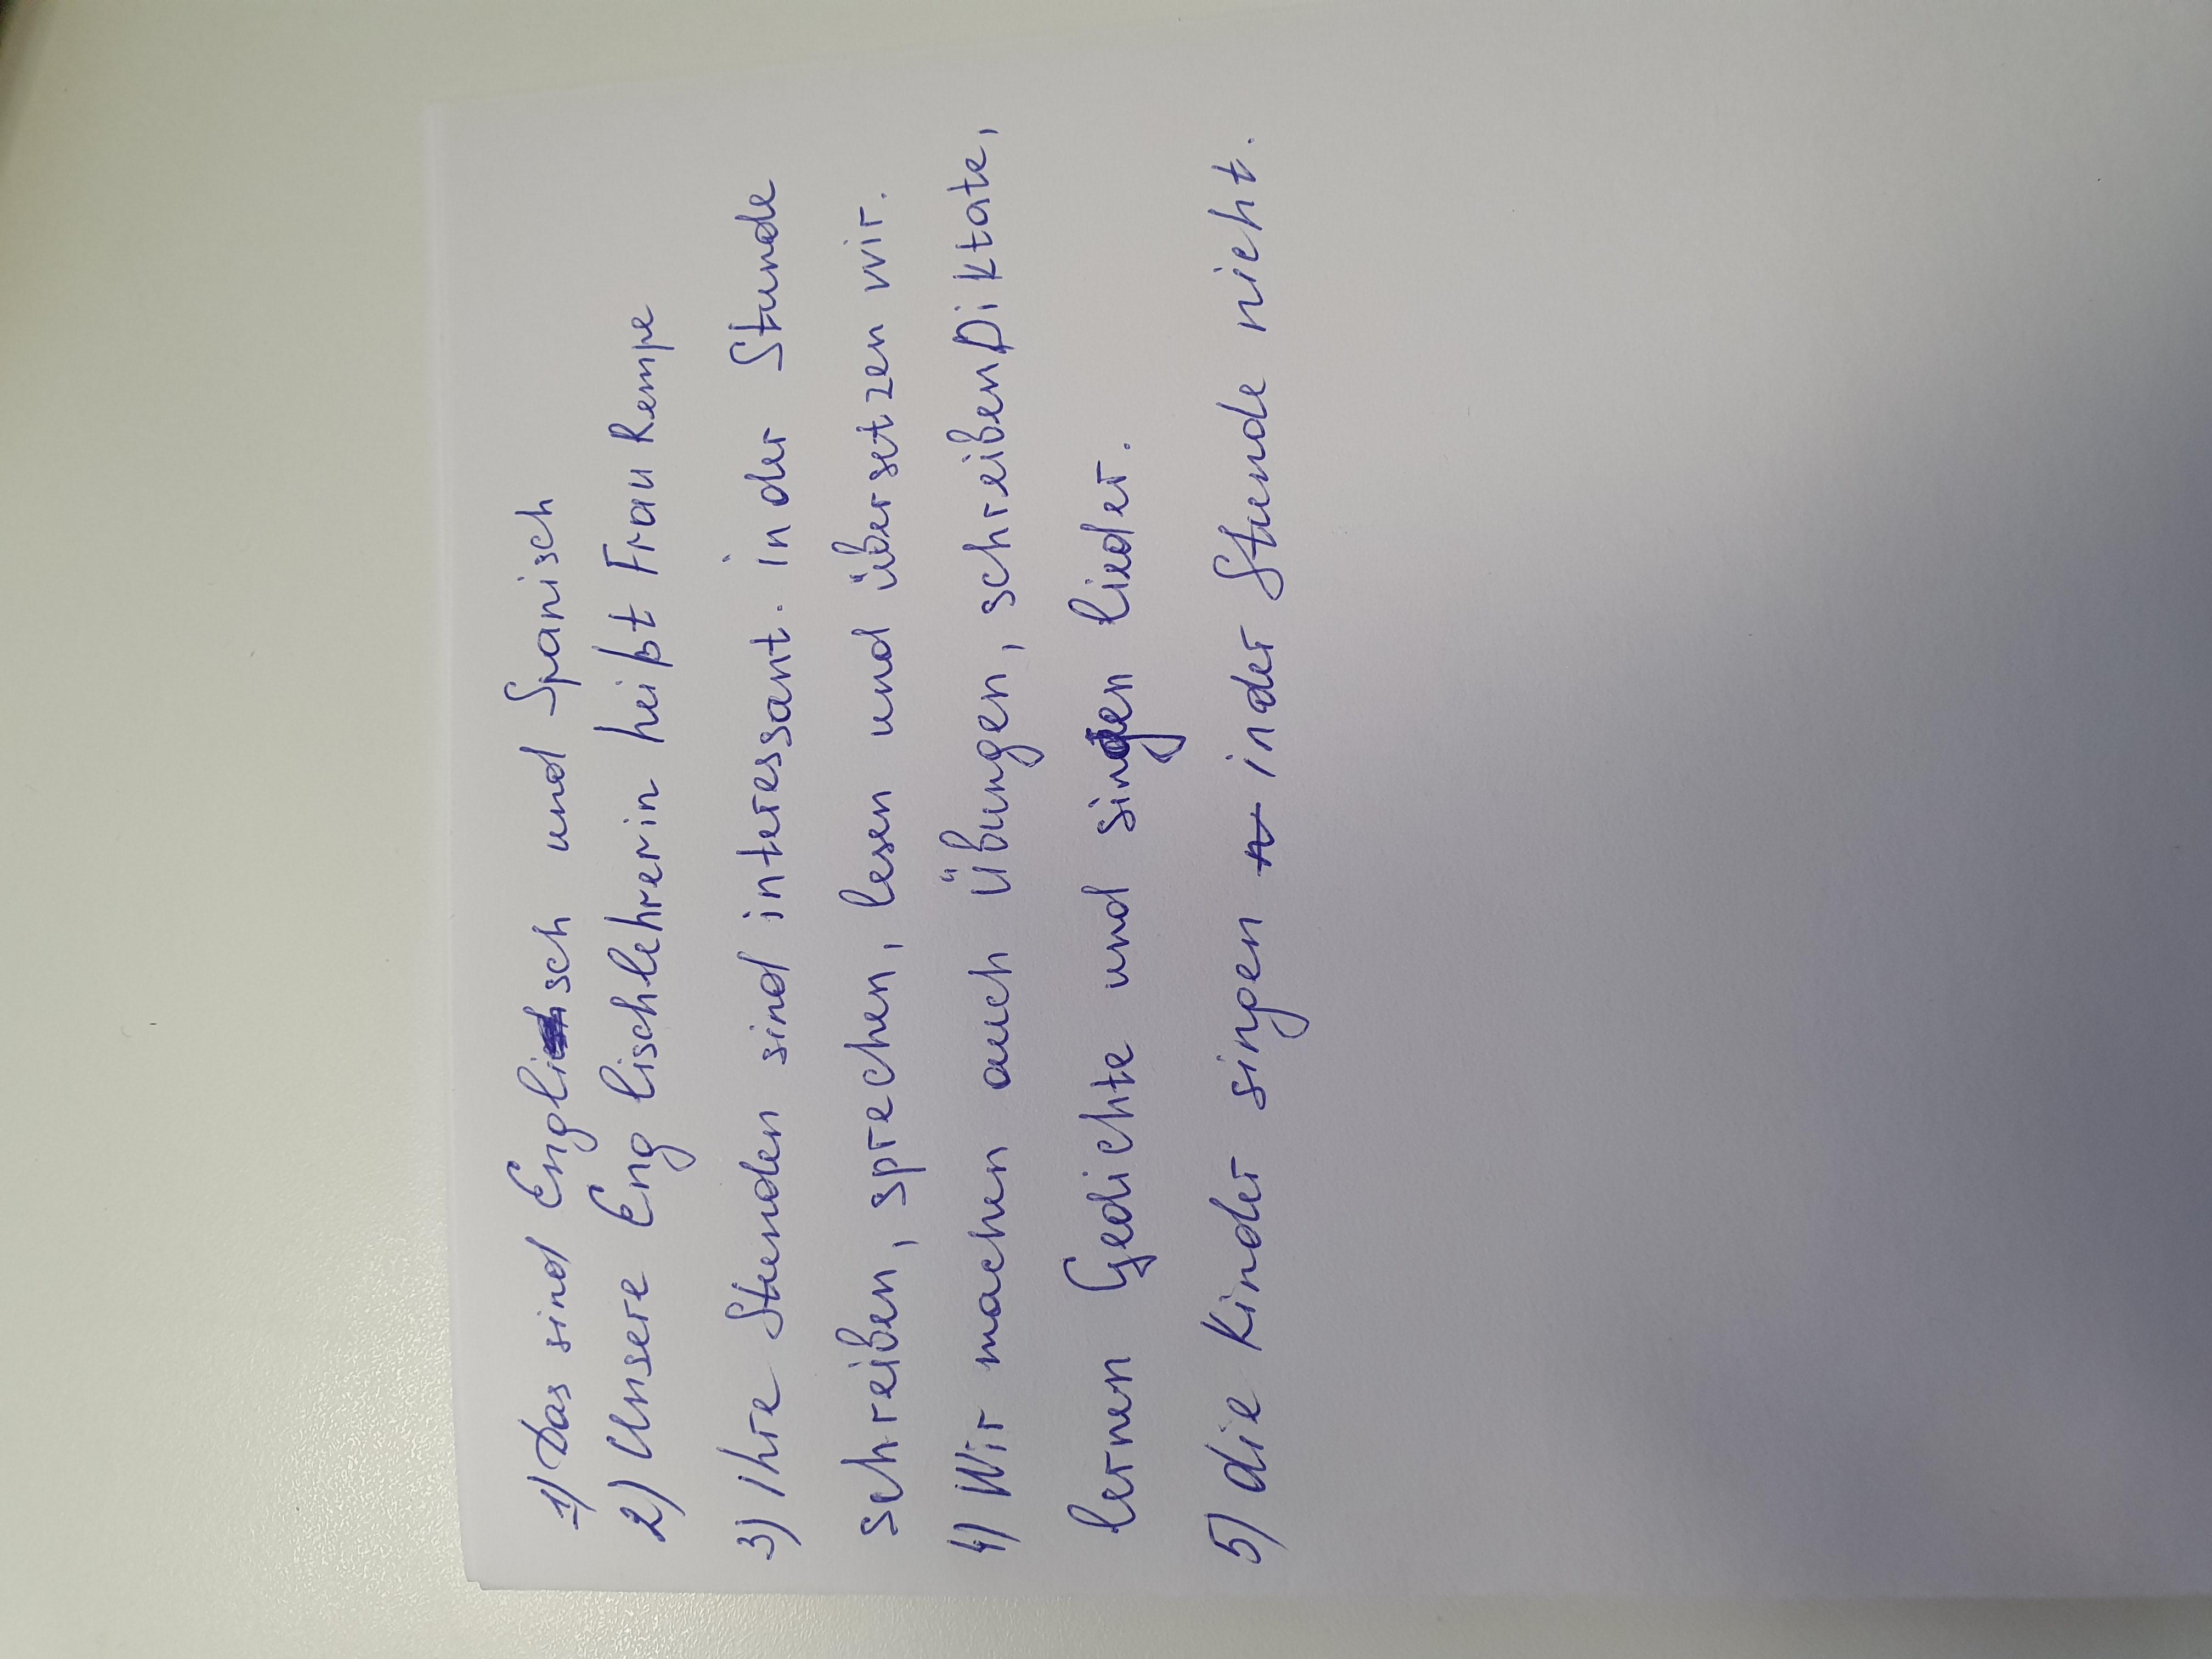 1) Das sind Englisch und Spanisch
2) Unsere Englischlehrerin heißt Frau Rempe
3) Ihre Stunden sind interessant. in der Stunde
schreiben, sprechen, lesen und übersetzen wir.
4) Wir machen auch Übungen, schreiben Diktate,
lernen Gedichte und singen lieder.
5) die Kinder singen in der Stunde nicht.